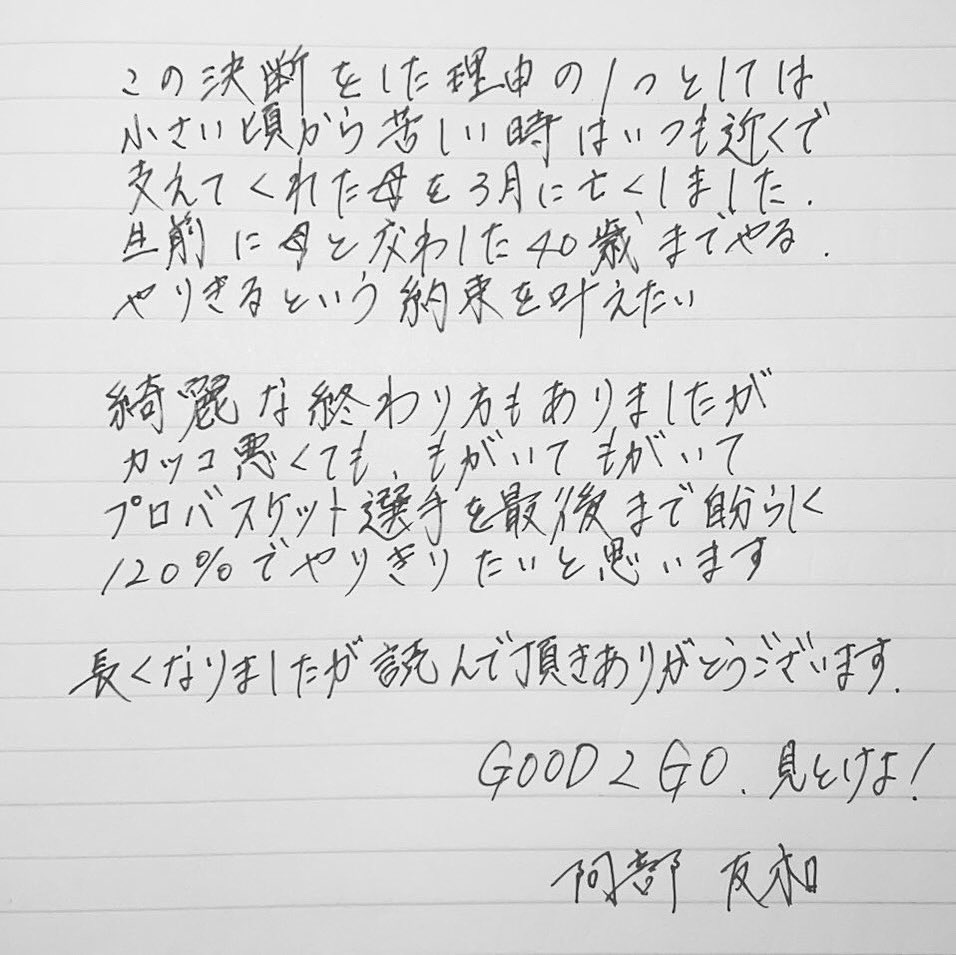 この決断をした理由の1つとしては
小さい頃から苦しい時はいつも近くで
支えてくれた母を3月に亡くしました.
生前に母と交わした40歳までやる.
やりきるという約束を叶えたい
綺麗な終わり方もありましたが
カッコ悪くても、もがいてもがいて
プロバスケット選手を最後まで自分らしく
120%でやりきりたいと思います
長くなりましたが読んで頂きありがとうございます.
GOOD2GO.見とけよ!
阿部 友和